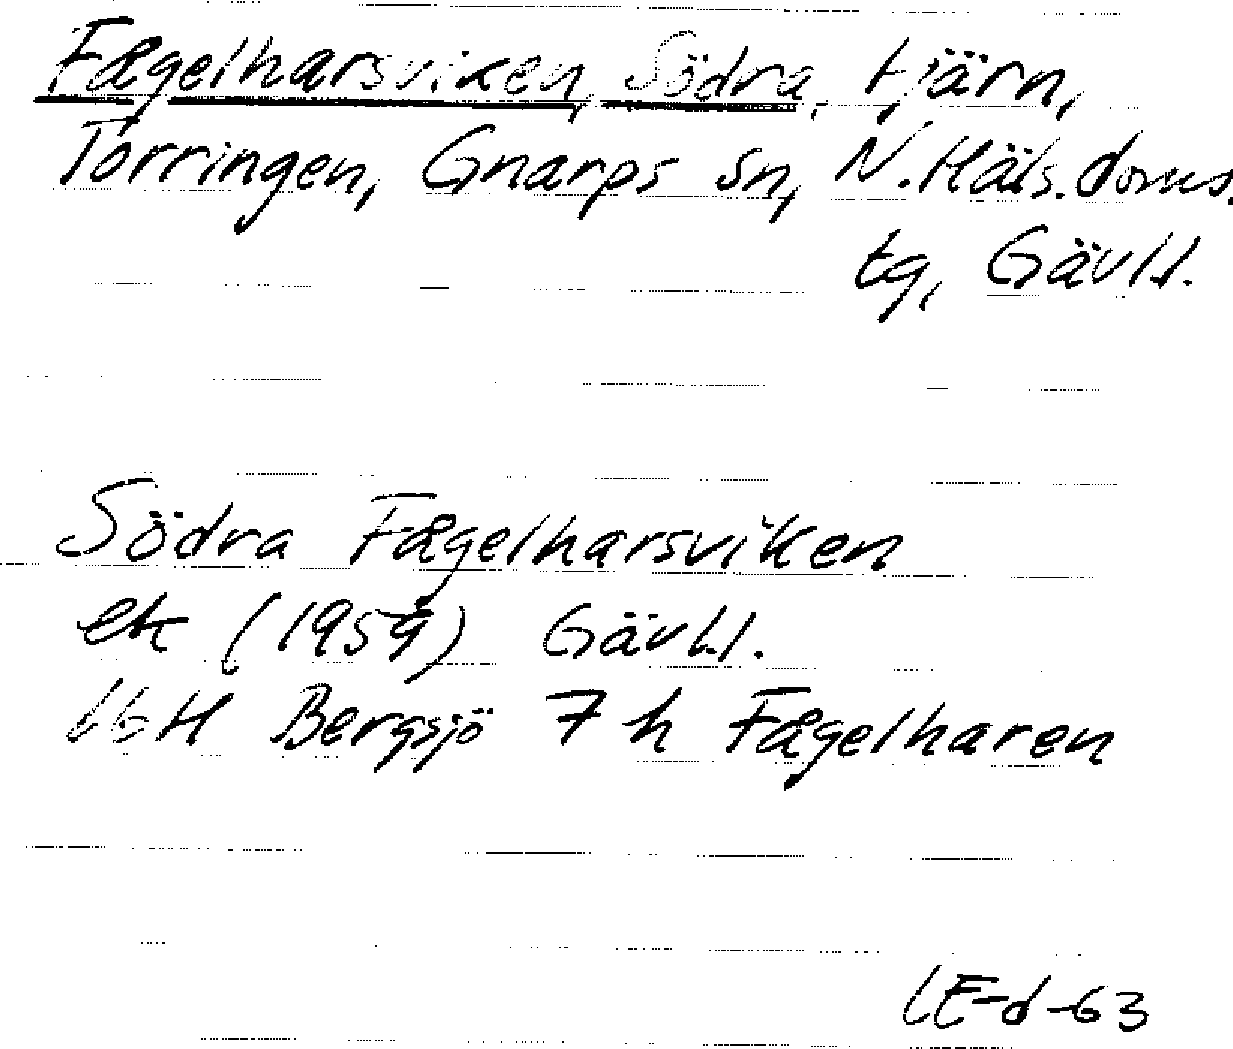 Fågelharsviken, Södra, tjärn,
Torringen, Gnarps sn, N. Häls. doms.
tg, Gävl.l.
Södra Fågelharsviken
ek (1959) Gävl.l.
16H Bergsjö 7h Fågelharen
LE-d-63